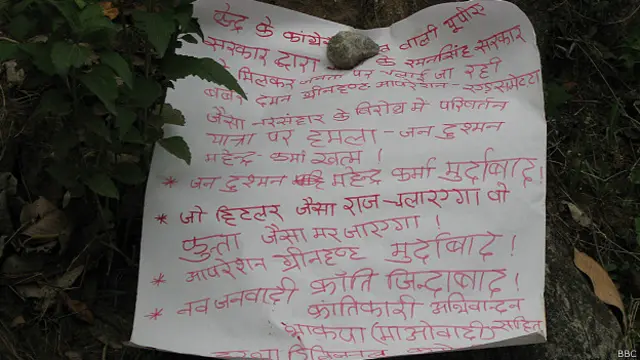 केन्द्र के कांग्रेस वाली यूपीए
सरकार द्वारा के रमनसिंह सरकार
मिलकर जनता पर चलाई जा रही
बर्बर दमन ग्रीनहण्ट आपरेशन - एड़समेट्टा
जैसा नरसंहार के विरोध में परिवर्तन
यात्रा पर हमला - जन दुश्मन
महेन्द्र कर्मा खत्म !
* जन दुश्मन महेन्द्र कर्मा मुर्दाबाद !
* जो हिटलर जैसा राज चलाएगा वो
कुत्ता जैसा मर जाएगा !
* आपरेशन ग्रीनहण्ट मुर्दाबाद !
* नव जनवादी क्रांति जिन्दाबाद !
क्रांतिकारी अभिवादन
भाकपा (माओवादी) सहित
BBC